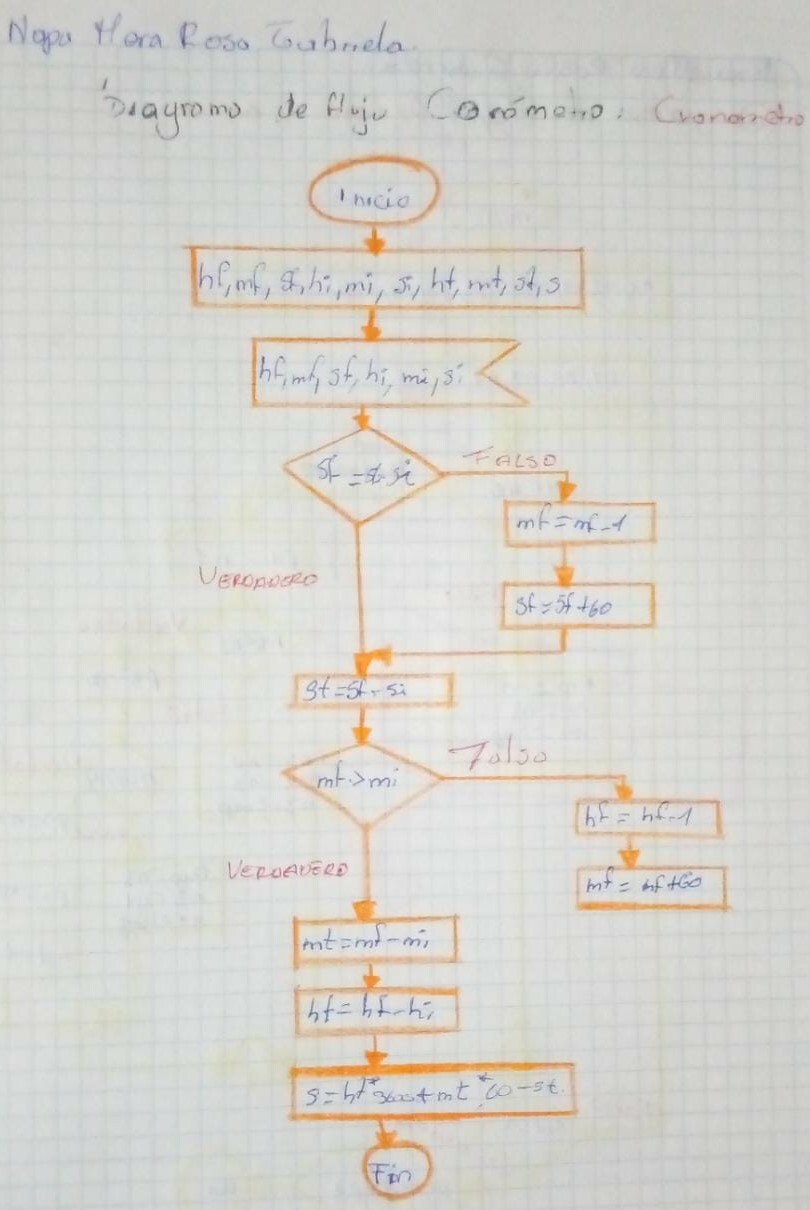 Napa Mora Rosa Gabriela.
Diagrama de flujo Conómetro. Cronometro
Inicio
hf, mf, sf, hi, mi, si, ht, mt, st, s
hf, mf, sf, hi, mi, si
FALSO
mf = mf - 1
VERDADERO
sf = sf + 60
st = sf - si
Falso
mf > mi
hf = hf - 1
VERDADERO
mf = mf + 60
mt = mf - mi
ht = hf - hi
s = ht * 3600 + mt * 60 - st.
Fin